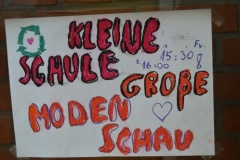 KLEINE
SCHULE
Fr.
15:30
16:00
GROßE
MODEN
SCHAU